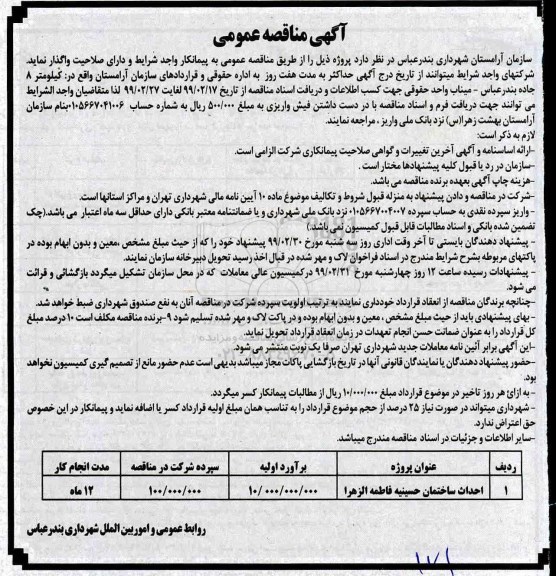 آگهی مناقصه عمومی
سازمان آرامستان شهرداری بندرعباس در نظر دارد پروژه ذیل را از طریق مناقصه عمومی به پیمانکار واجد شرایط و دارای صلاحیت واگذار نماید.
شرکتهای واجد شرایط میتوانند از تاریخ درج آگهی حداکثر به مدت هفت روز به اداره حقوقی و قراردادهای سازمان آرامستان واقع در: کیلومتر ۸
جاده بندرعباس - میناب واحد حقوقی جهت کسب اطلاعات و دریافت اسناد مناقصه از تاریخ ۹۹/۰۲/۱۷ لغایت ۹۹/۰۲/۲۷ لذا متقاضیان واجد الشرایط
می توانند جهت دریافت فرم و اسناد مناقصه با در دست داشتن فیش واریزی به مبلغ ۵۰۰/۰۰۰ ریال به شماره حساب ۰۱۰۵۶۶۷۰۴۱۰۰۶بنام سازمان
آرامستان بهشت زهرا(س) نزد بانک ملی واریز ، مراجعه نمایند.
لازم به ذکر است:
-ارائه اساسنامه و آگهی آخرین تغییرات و گواهی صلاحیت پیمانکاری شرکت الزامی است.
-سازمان در رد یا قبول کلیه پیشنهادها مختار است .
-هزینه چاپ آگهی بعهده برنده مناقصه می باشد.
-شرکت در مناقصه و دادن پیشنهاد به منزله قبول شروط و تکالیف موضوع ماده ۱۰ آیین نامه مالی شهرداری تهران و مراکز استانها است.
- واریز سپرده نقدی به حساب سپرده ۰۱۰۵۶۶۷۰۰۴۰۰۷ نزد بانک ملی شهرداری و یا ضمانتنامه معتبر بانکی دارای حداقل سه ماه اعتبار می باشد.(چک
تضمین شده بانکی و اسناد مطالبات قابل قبول کمیسیون نمی باشد.)
- پیشنهاد دهندگان بایستی تا آخر وقت اداری روز سه شنبه مورخ ۹۹/۰۲/۳۰ پیشنهاد خود را که از حیث مبلغ مشخص ،معین و بدون ابهام بوده در
پاکتهای مربوطه بشرح شرایط مندرج در اسناد فراخوان لاک و مهر شده در قبال اخذ رسید تحویل دبیرخانه سازمان نمایند.
- پیشنهادات رسیده ساعت ۱۲ روز چهارشنبه مورخ ۹۹/۰۲/۳۱ درکمیسیون عالی معاملات که در محل سازمان تشکیل میگردد بازگشائی و قرائت
می شود.
-چنانچه برندگان مناقصه از انعقاد قرارداد خودداری نمایند به ترتیب اولویت سپرده شرکت در مناقصه آنان به نفع صندوق شهرداری ضبط خواهد شد.
- بهای پیشنهادی باید از حیث مبلغ مشخص ، معین و بدون ابهام بوده و در پاکت لاک و مهر شده تسلیم شود ۹-برنده مناقصه مکلف است ۱۰ درصد مبلغ
کل قرارداد را به عنوان ضمانت حسن انجام تعهدات در زمان انعقاد قرارداد تحویل نماید.
-این آگهی برابر آئین نامه معاملات جدید شهرداری تهران صرفا یک نوبت منتشر می شود.
-حضور پیشنهاد دهندگان یا نمایندگان قانونی آنها در تاریخ بازگشایی پاکات مجاز میباشد بدیهی است عدم حضور مانع از تصمیم گیری کمیسیون نخواهد
بود.
- به ازائ هر روز تاخیر در موضوع قرارداد مبلغ ۱۰/۰۰۰/۰۰۰ ریال از مطالبات پیمانکار کسر میگردد.
- شهرداری میتواند در صورت نیاز ۲۵ درصد از حجم موضوع قرارداد را به تناسب همان مبلغ اولیه قرارداد کسر یا اضافه نماید و پیمانکار در این خصوص
حق اعتراض ندارد.
-سایر اطلاعات و جزئیات در اسناد مناقصه مندرج میباشد.
ردیف عنوان پروژه برآورد اولیه سپرده شرکت در مناقصه مدت انجام کار
۱ احداث ساختمان حسینیه فاطمه الزهرا ۱۰/۰۰۰/۰۰۰/۰۰۰ ۱۰۰/۰۰۰/۰۰۰ ۱۲ ماه
روابط عمومی و اموربین الملل شهرداری بندرعباس